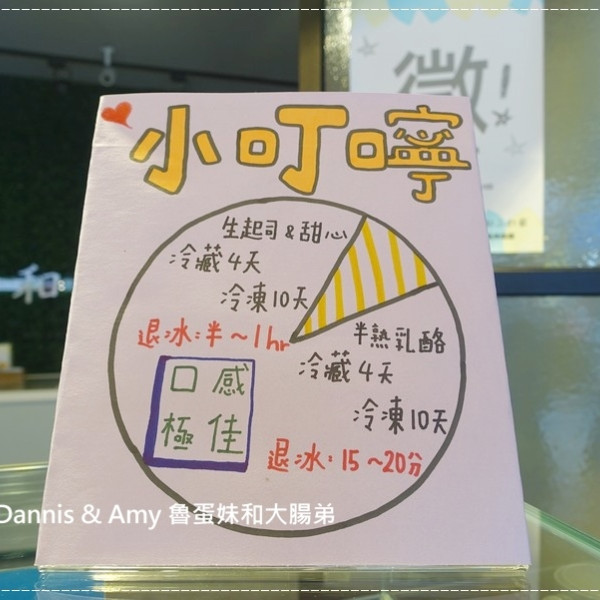 微!
和
小叮嚀
生起司&甜心
冷藏4天
冷凍10天
退冰:半~1hr
半熟乳酪
冷藏4天
冷凍10天
退冰:15~20分
口感
極佳
Dannis & Amy 魯蛋妹和大腸弟